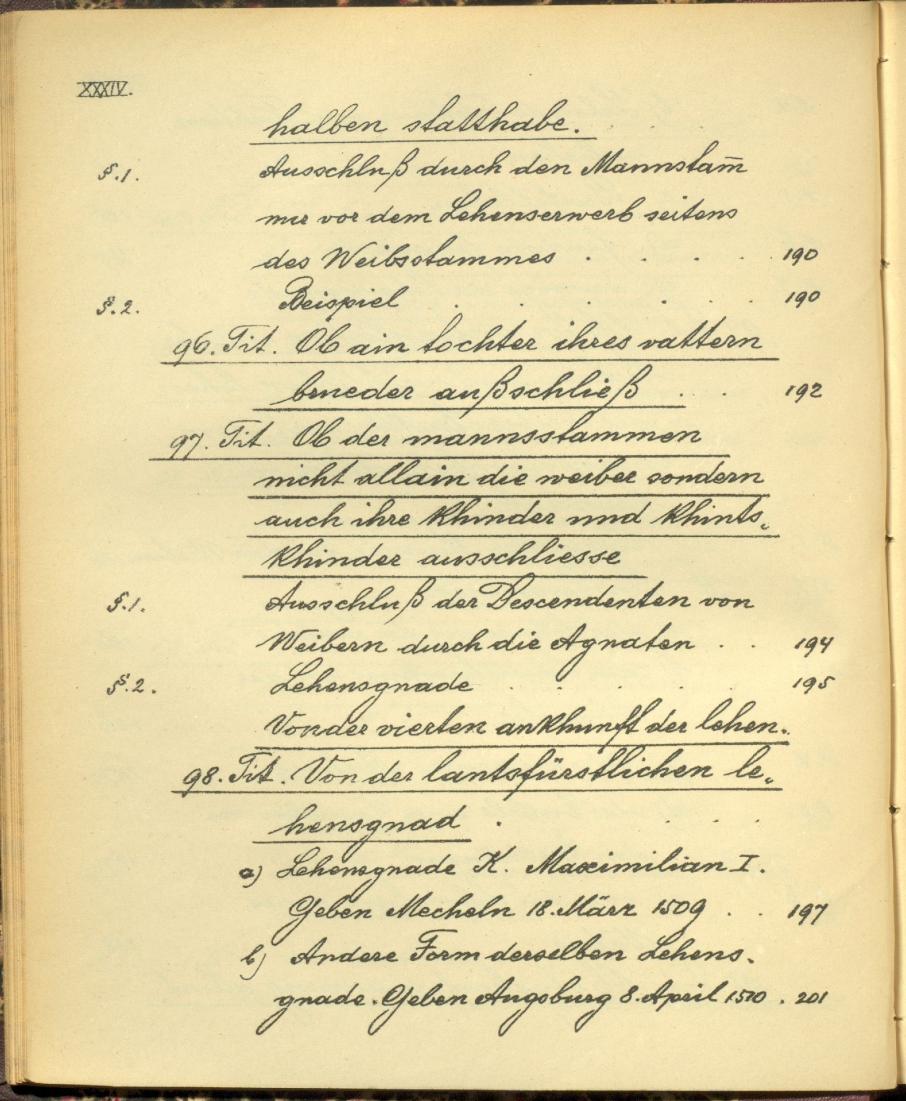 XXXIV.
halben statthabe.
§.1. Ausschluß durch den Mannstam̅
nur vor dem Lehenserwerb seitens
des Weibsstammes . . . . 190
§.2. Beispiel . . . . . . 190
96. Tit. Ob ain tochter ihres vattern
brueder außschließ . . . 192
97. Tit. Ob der mannsstammen
nicht allain die weiber sondern
auch ihre khinder und khints-
khinder ausschliesse
§.1. Ausschluß der Descendenten von
Weibern durch die Agnaten . . 194
§.2. Lehensgnade . . . . . 195
Von der vierten ankhunft der lehen.
98. Tit. Von der lantsfürstlichen le-
hensgnad . . . .
a) Lehensgnade K. Maximilian I.
Geben Mecheln 18. März 1509 . . 197
b) Andere Form derselben Lehens-
gnade. Geben Augsburg 8. April 1510 . 201